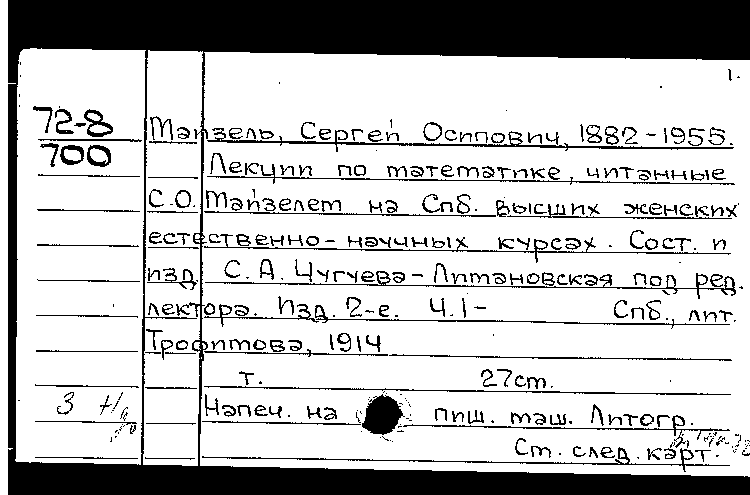 1.
72-8
700
Майзель, Сергей Осипович, 1882-1955.
Лекции по математике, читанные
С.О. Майзелем на Спб. высших женских
естественно-научных курсах. Сост. и
изд. С.А. Чугуева-Литановская под ред.
лектора. Изд. 2-е. Ч.1- Спб., лит.
Трофимова, 1914
т. 27см.
3 Напеч. на пиш. маш. Литогр.
См. след. карт.